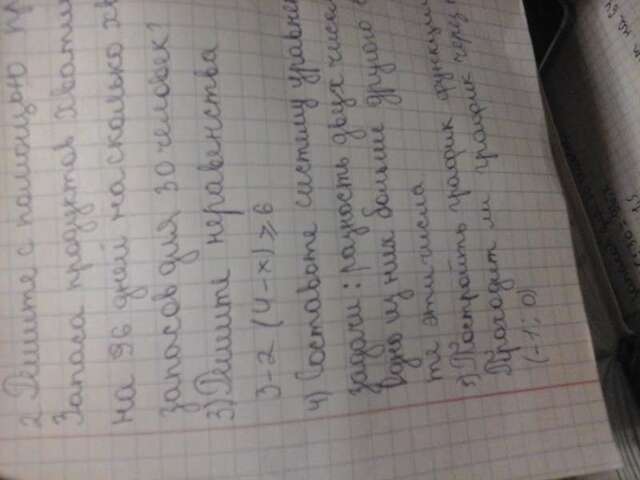 2 Решите с помощью пр
Запаса продуктов хватит
на 96 дней на сколько хв
запасов для 30 человек?
3) Решите неравенства
3-2 (4-x) ⩾ 6
4) Составоте систему уравне
задачи: разность двух чисел
Одно из них больше другого в
те эти числа
5) Построить график функции
Проходит ли график через
(-1; 0)